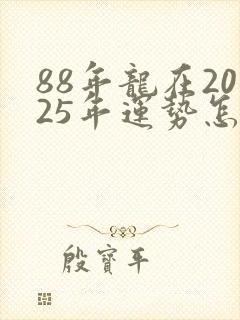 88年龍在20
25年運势怎
殷寳平